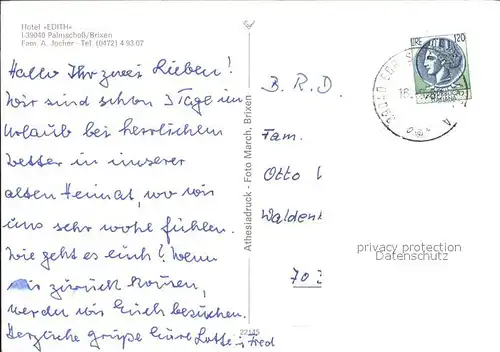 Hotel «EDITH»
I-39040 Palmschoß/Brixen
Fam. A. Jocher - Tel. (0472) 4 93 07
Hallo Ihr zwei Lieben!
Wir sind schon 3 Tage im
Urlaub bei herrlichem
Wetter in unserer
alten Heimat, wo wir
uns sehr wohl fühlen.
Wie geht es euch? Wenn
wir zurück kommen,
werden wir Euch besuchen.
Herzliche Grüße Eure Lotte u. Fred
Athesiadruck - Foto March, Brixen
22145
LIRE 120
39040
B. R. D.
Fam.
Otto
Waldenb
70
privacy protection
Datenschutz